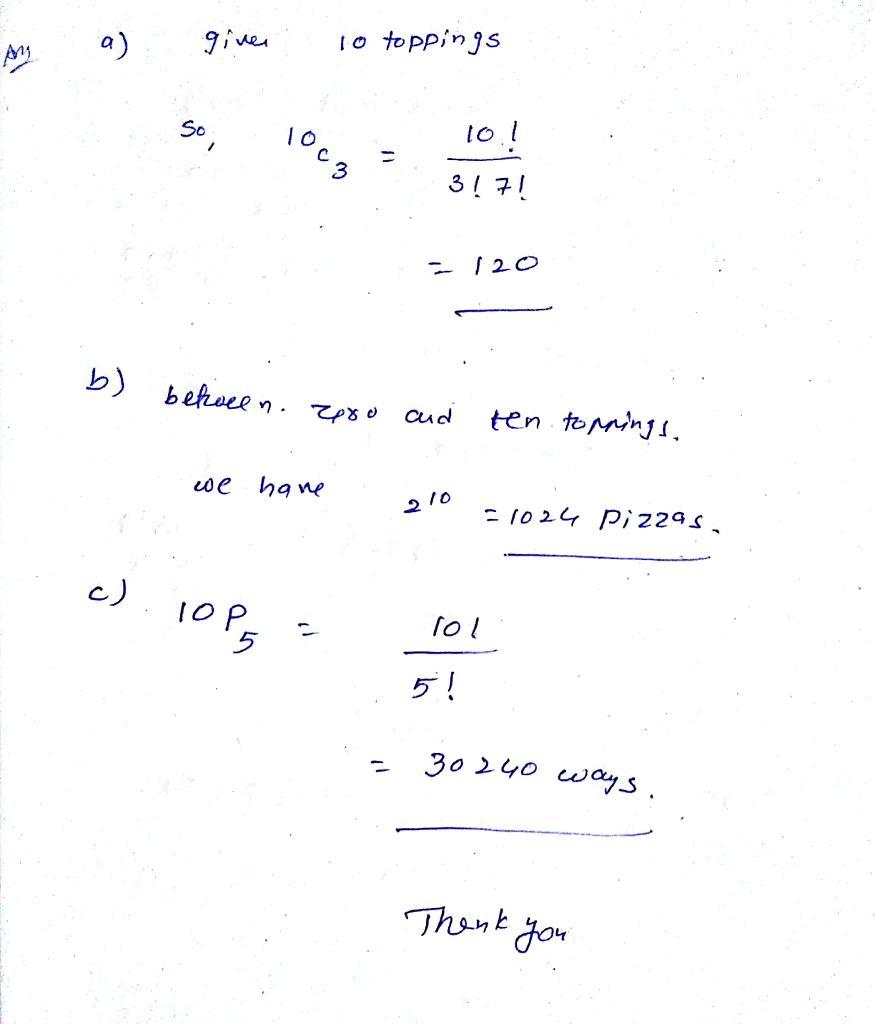 Ans a) given 10 toppings
So, 10C3 = 10! / 3! 7!
= 120
b) between. zero and ten toppings.
we have 2^10 = 1024 pizzas.
c) 10P5 = 10! / 5!
= 30240 ways.
Thank you